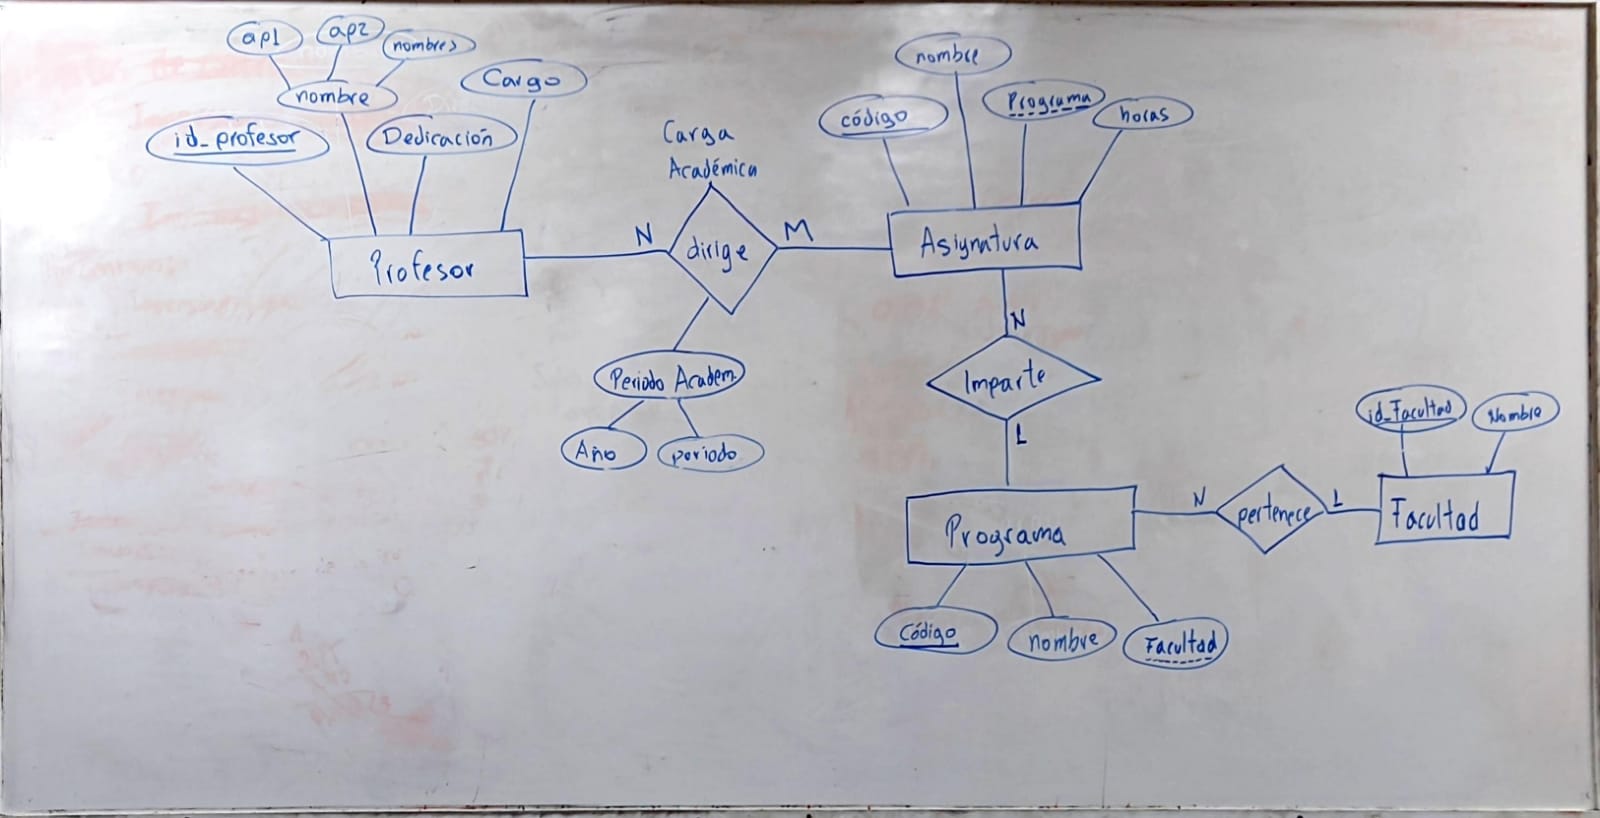 ap1
ap2
nombres
nombre
Cargo
id_profesor
Dedicación
Profesor
Carga
Académica
N
dirige
M
Periodo Academ.
Año
periodo
nombre
código
Programa
horas
Asignatura
N
Imparte
1
Programa
Código
nombre
Facultad
N
pertenece
1
id_Facultad
Nombre
Facultad